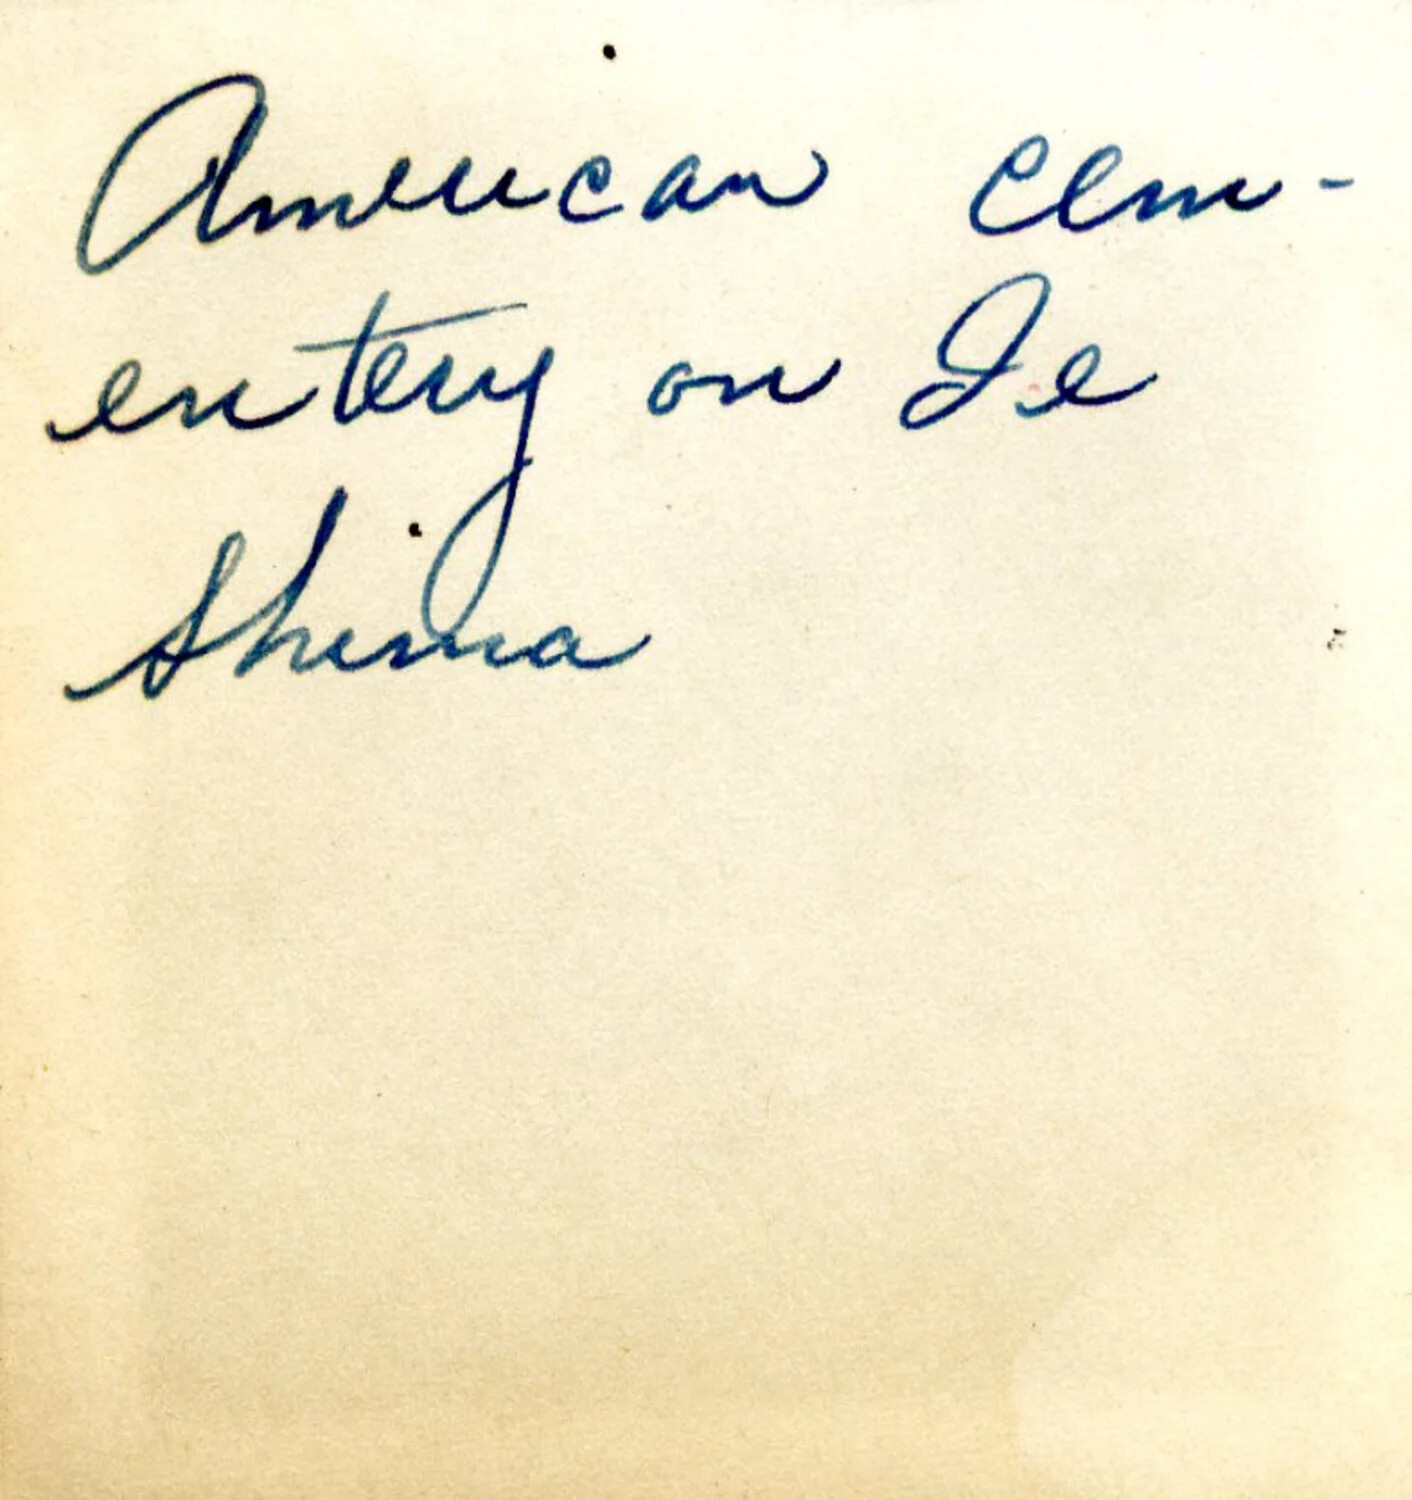 American cem-
entery on Ie
Shima